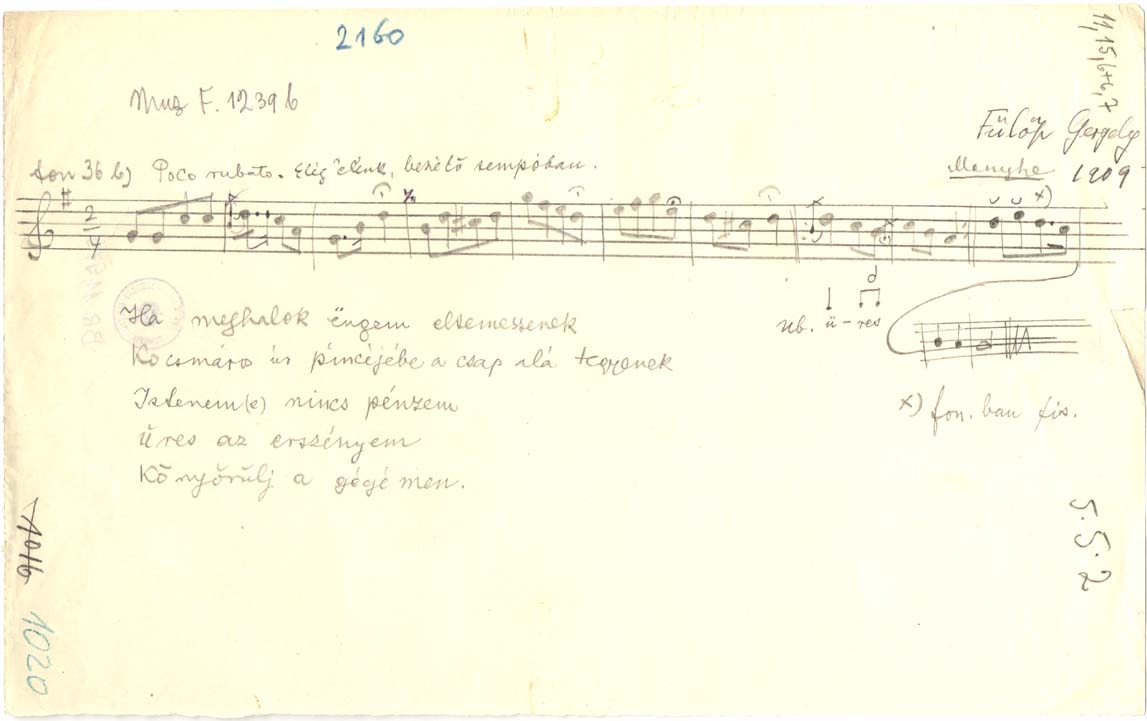 2160
11, 15, 6+6, 7
Muz F. 1239 b
Fülöp Gergely
fon 36 b) Poco rubato. Elég élénk, beszélő tempóban.
1909
2/4
x)
Ha meghalok ëngem eltemessenek
nb. ü-res
Kocsmáros úr pincéjébe a csap alá tegyenek
Istenem(e) nincs pénzem
x) fon. ban fis.
Üres az erszényem
Könyörülj a gégémen.
5.5.2
1020